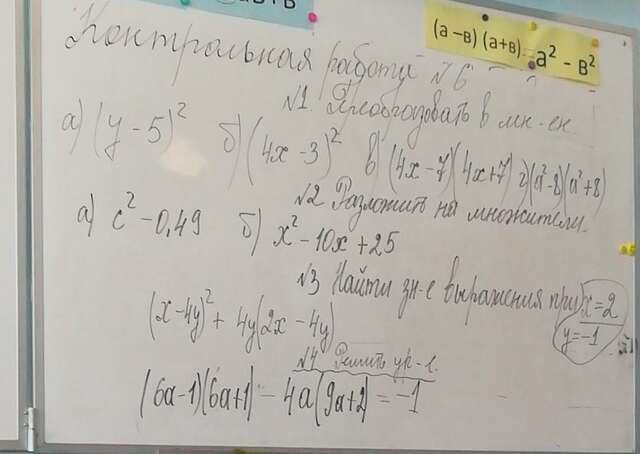 (а-в)(а+в)=а² - в²
Контрольная работа №6
№1 Преобразовать в мн-ен.
а) (y-5)² б) (4x-3)² в) (4x-7)(4x+7) г) (a²-8)(a²+8)
№2 Разложить на множители.
а) c² - 0,49 б) x² - 10x + 25
№3 Найти зн-е выражения при x=2
y=-1
(x-4y)² + 4y(2x-4y)
№4 Решить ур-е.
(6a-1)(6a+1) - 4a(9a+2) = -1